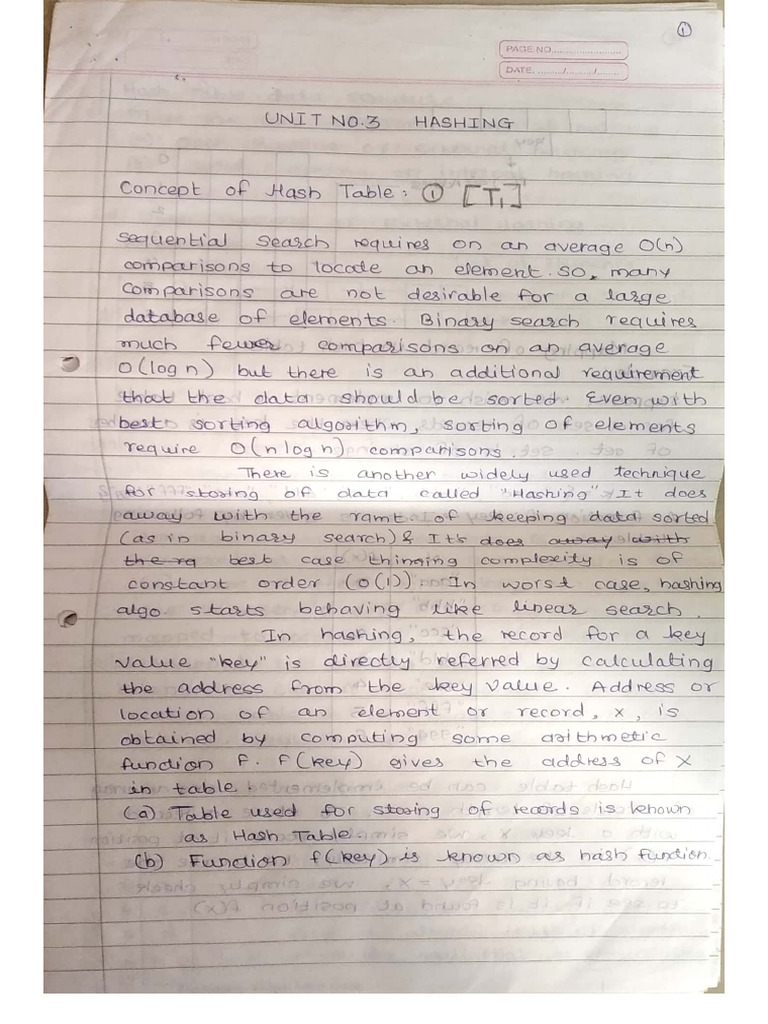 1
PAGE NO.
DATE. / /
UNIT NO.3 HASHING
Concept of Hash Table : ① [T1]
sequential search requires on an average O(n)
comparisons to locate an element. so, many
comparisons are not desirable for a large
database of elements. Binary search requires
much fewer comparisons on an average
O(log n) but there is an additional requirement
that the data should be sorted. Even with
best sorting algorithm, sorting of elements
require O(n log n) comparisons.
There is another widely used technique
for storing of data called "Hashing". It does
away with the ramt of keeping data sorted
(as in binary search) & It's does away with
the rq best case thinging complexity is of
constant order (O(1)). In worst case, hashing
algo. starts behaving like linear search.
In hashing, the record for a key
value "key" is directly referred by calculating
the address from the key value. Address or
location of an element or record, x, is
obtained by computing some arithmetic
function f. f(key) gives the address of x
in table.
(a) Table used for storing of records is known
as Hash Table.
(b) Function f(key) is known as hash function.